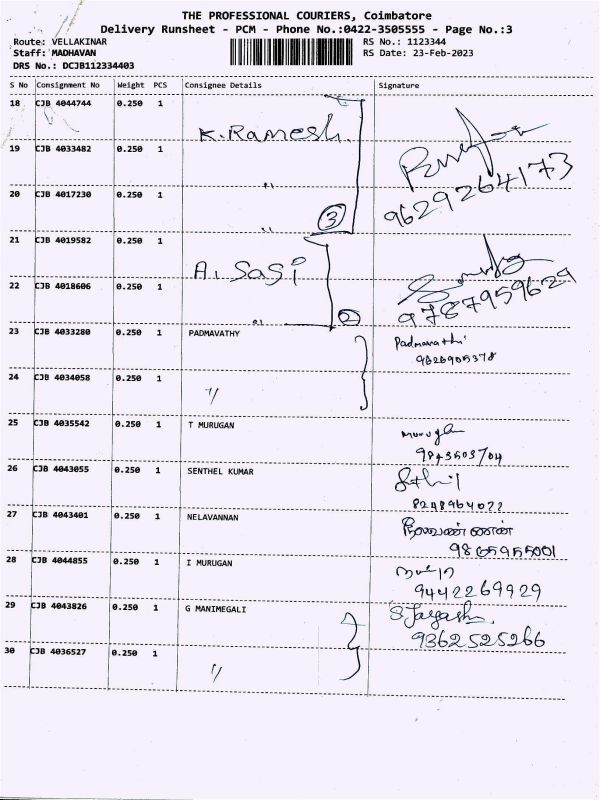 THE PROFESSIONAL COURIERS, Coimbatore
Delivery Runsheet - PCM - Phone No.:0422-3505555 - Page No.:3
Route: VELLAKINAR
RS No.: 1123344
Staff: MADHAVAN
RS Date: 23-Feb-2023
DRS No.: DCJB112334403
S No Consignment No Weight PCS Consignee Details Signature
18 CJB 4044744 0.250 1
K. Ramesh
19 CJB 4033482 0.250 1
9629264173
20 CJB 4017230 0.250 1
3
21 CJB 4019582 0.250 1
A. Sasi
22 CJB 4018606 0.250 1
9787959629
2
23 CJB 4033280 0.250 1 PADMAVATHY Padmavathi
24 CJB 4034058 0.250 1
〃
25 CJB 4035542 0.250 1 T MURUGAN
9843503704
26 CJB 4043055 0.250 1 SENTHEL KUMAR
27 CJB 4043401 0.250 1 NELAVANNAN
28 CJB 4044855 0.250 1 I MURUGAN
9442269929
29 CJB 4043826 0.250 1 G MANIMEGALI
9362525266
30 CJB 4036527 0.250 1
〃